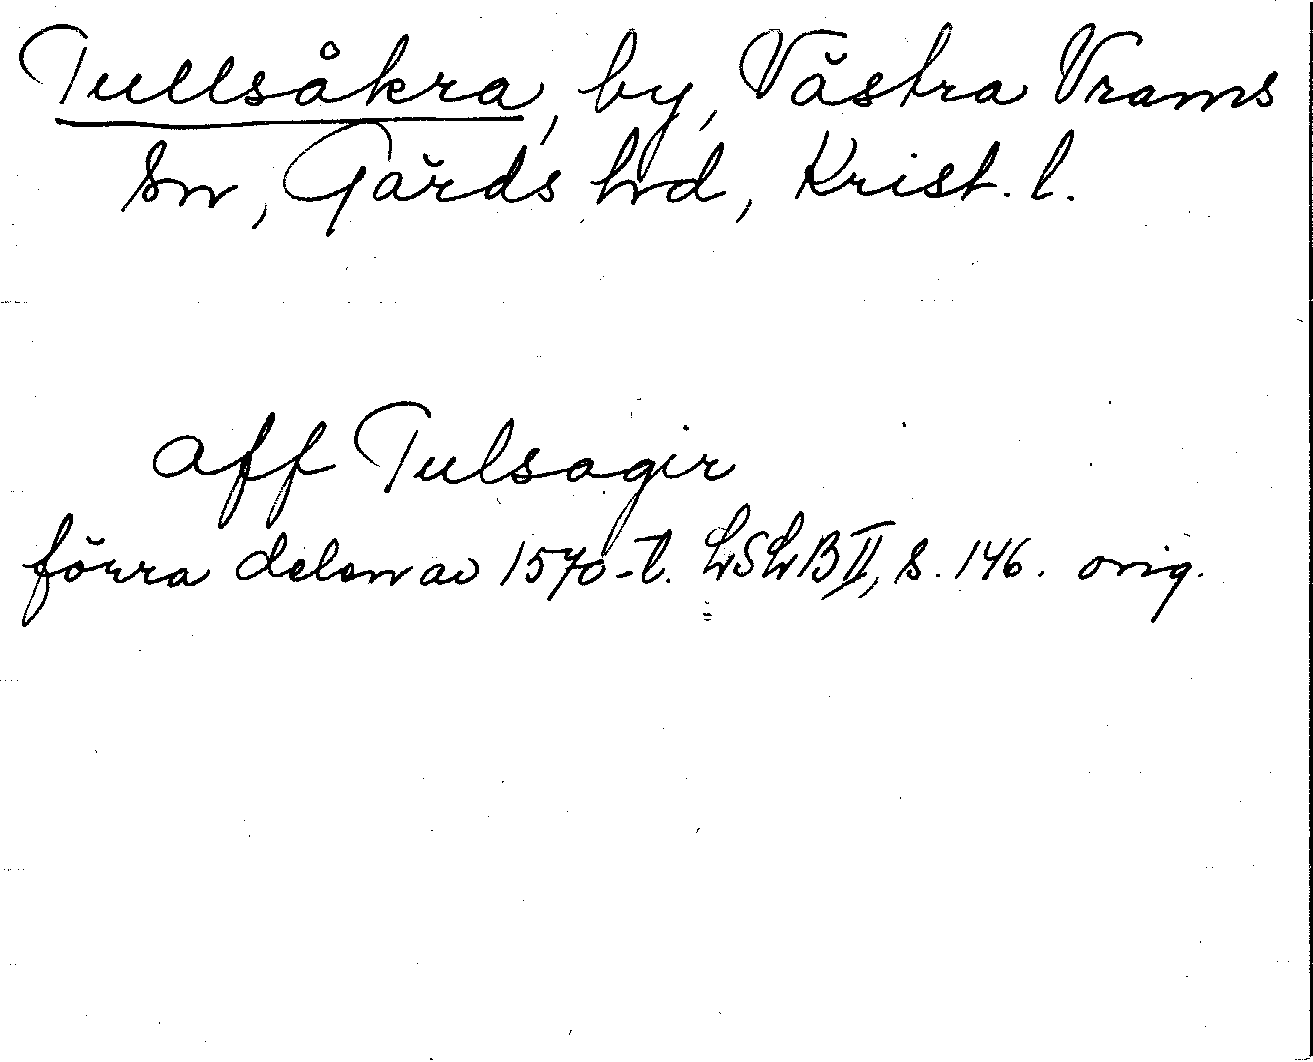 Tullsåkra, by, Västra Vrams
sn, Gärds hd, Krist. l.
aff Tulsagir
förra delen av 1570-t. LSLB II, s. 146. orig.